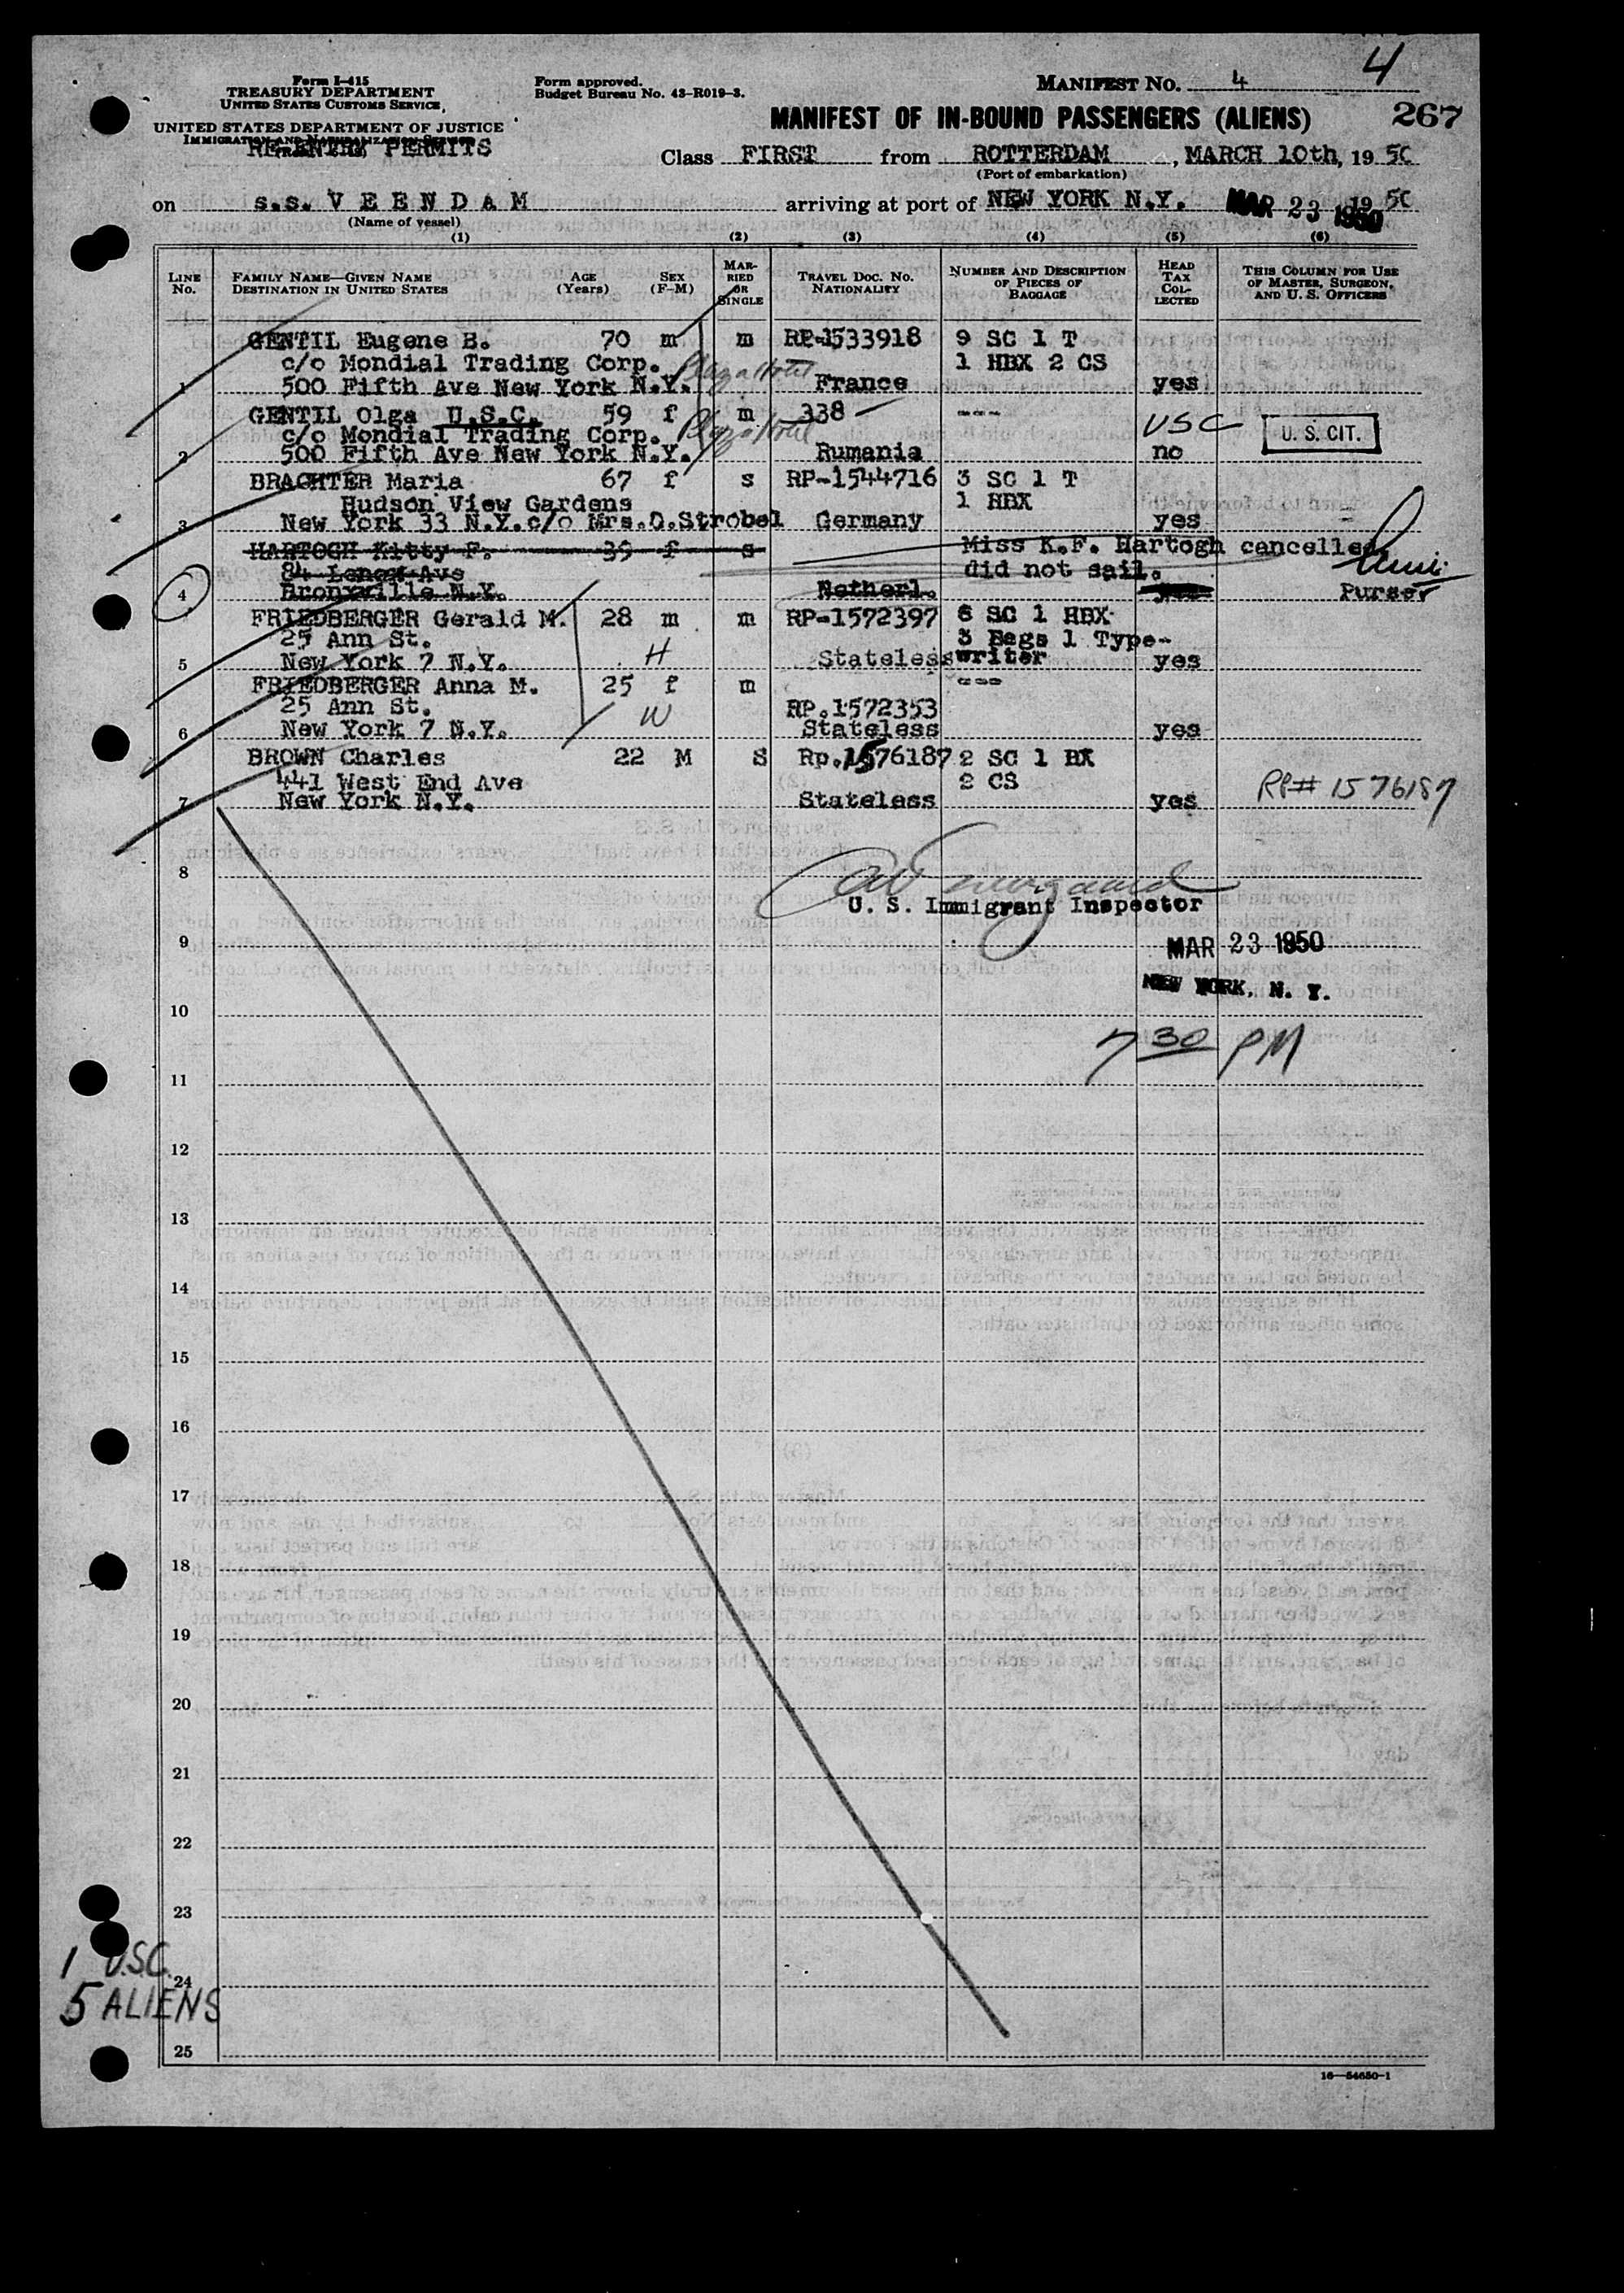 4
Form I-415
TREASURY DEPARTMENT
UNITED STATES CUSTOMS SERVICE
UNITED STATES DEPARTMENT OF JUSTICE
IMMIGRATION AND NATURALIZATION SERVICE
RE-ENTRY PERMITS
Form approved.
Budget Bureau No. 43-R019-3.
MANIFEST NO. 4
MANIFEST OF IN-BOUND PASSENGERS (ALIENS) 267
Class FIRST from ROTTERDAM, MARCH 10th, 19 50
(Port of embarkation)
on s.s. V E E N D A M arriving at port of NEW YORK N.Y. MAR 23 1950 19 50
(Name of vessel)
(1) (2) (3) (4) (5) (6)
LINE No.
FAMILY NAME—GIVEN NAME
DESTINATION IN UNITED STATES
AGE
(Years)
SEX
(F-M)
MARRIED OR SINGLE
TRAVEL DOC. NO.
NATIONALITY
NUMBER AND DESCRIPTION
OF PIECES OF
BAGGAGE
HEAD
TAX
COLLECTED
THIS COLUMN FOR USE
OF MASTER, SURGEON,
AND U. S. OFFICERS
GENTIL Eugene B. 70 m m RP-1533918 9 SC 1 T
c/o Mondial Trading Corp. Plaza Hotel 1 HBX 2 CS
1 500 Fifth Ave New York N.Y. France yes
GENTIL Olga U.S.C. 59 f m 338 --- USC U. S. CIT.
c/o Mondial Trading Corp. Plaza Hotel
2 500 Fifth Ave New York N.Y. Rumania no
BRACHTER Maria 67 f s RP-1544716 3 SC 1 T
Hudson View Gardens 1 HBX
3 New York 33 N.Y. c/o Mrs.O.Strobel Germany yes
HARTOGH Kitty F. 39 f s Miss K.F. Hartogh cancelled
84 Lenox Ave did not sail.
4 Bronxville N.Y. Netherl. yes Purser
FRIEDBERGER Gerald M. 28 m m RP-1572397 6 SC 1 HBX
25 Ann St. 3 Bags 1 Type-
5 New York 7 N.Y. H Stateless writer yes
FRIEDBERGER Anna M. 25 f m ---
25 Ann St. W RP.1572353
6 New York 7 N.Y. Stateless yes
BROWN Charles 22 M S Rp.1576187 2 SC 1 BX
441 West End Ave 2 CS RP# 1576187
7 New York N.Y. Stateless yes
8
U. S. Immigrant Inspector
9 MAR 23 1950
NEW YORK, N. Y.
10
7 30 PM
11
12
13
14
15
16
17
18
19
20
21
22
23
1 U.S.C.
24
5 ALIENS
25
16—54650-1